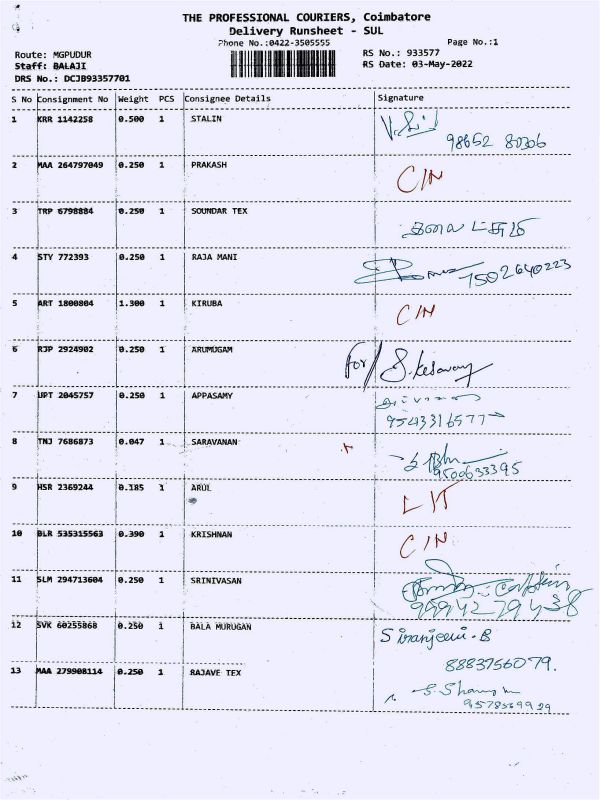 THE PROFESSIONAL COURIERS, Coimbatore
Delivery Runsheet - SUL
Phone No.:0422-3505555
Page No.:1
Route: MGPUDUR
RS No.: 933577
Staff: BALAJI
RS Date: 03-May-2022
DRS No.: DCJB93357701
S No Consignment No Weight PCS Consignee Details Signature
1 KRR 1142258 0.500 1 STALIN
98652 80306
2 MAA 264797049 0.250 1 PRAKASH C/N
3 TRP 6798884 0.250 1 SOUNDAR TEX
4 STY 772393 0.250 1 RAJA MANI 7502640223
5 ART 1800804 1.300 1 KIRUBA C/N
6 RJP 2924902 0.250 1 ARUMUGAM for/ S.Kesavan
7 UPT 2045757 0.250 1 APPASAMY
9543316577
8 TNJ 7686873 0.047 1 SARAVANAN
9500633395
9 HSR 2369244 0.185 1 ARUL
10 BLR 535315563 0.390 1 KRISHNAN C/N
11 SLM 294713604 0.250 1 SRINIVASAN
9994279438
12 SVK 60255868 0.250 1 BALA MURUGAN Siranjeevi.B
8883756079.
13 MAA 279908114 0.250 1 RAJAVE TEX